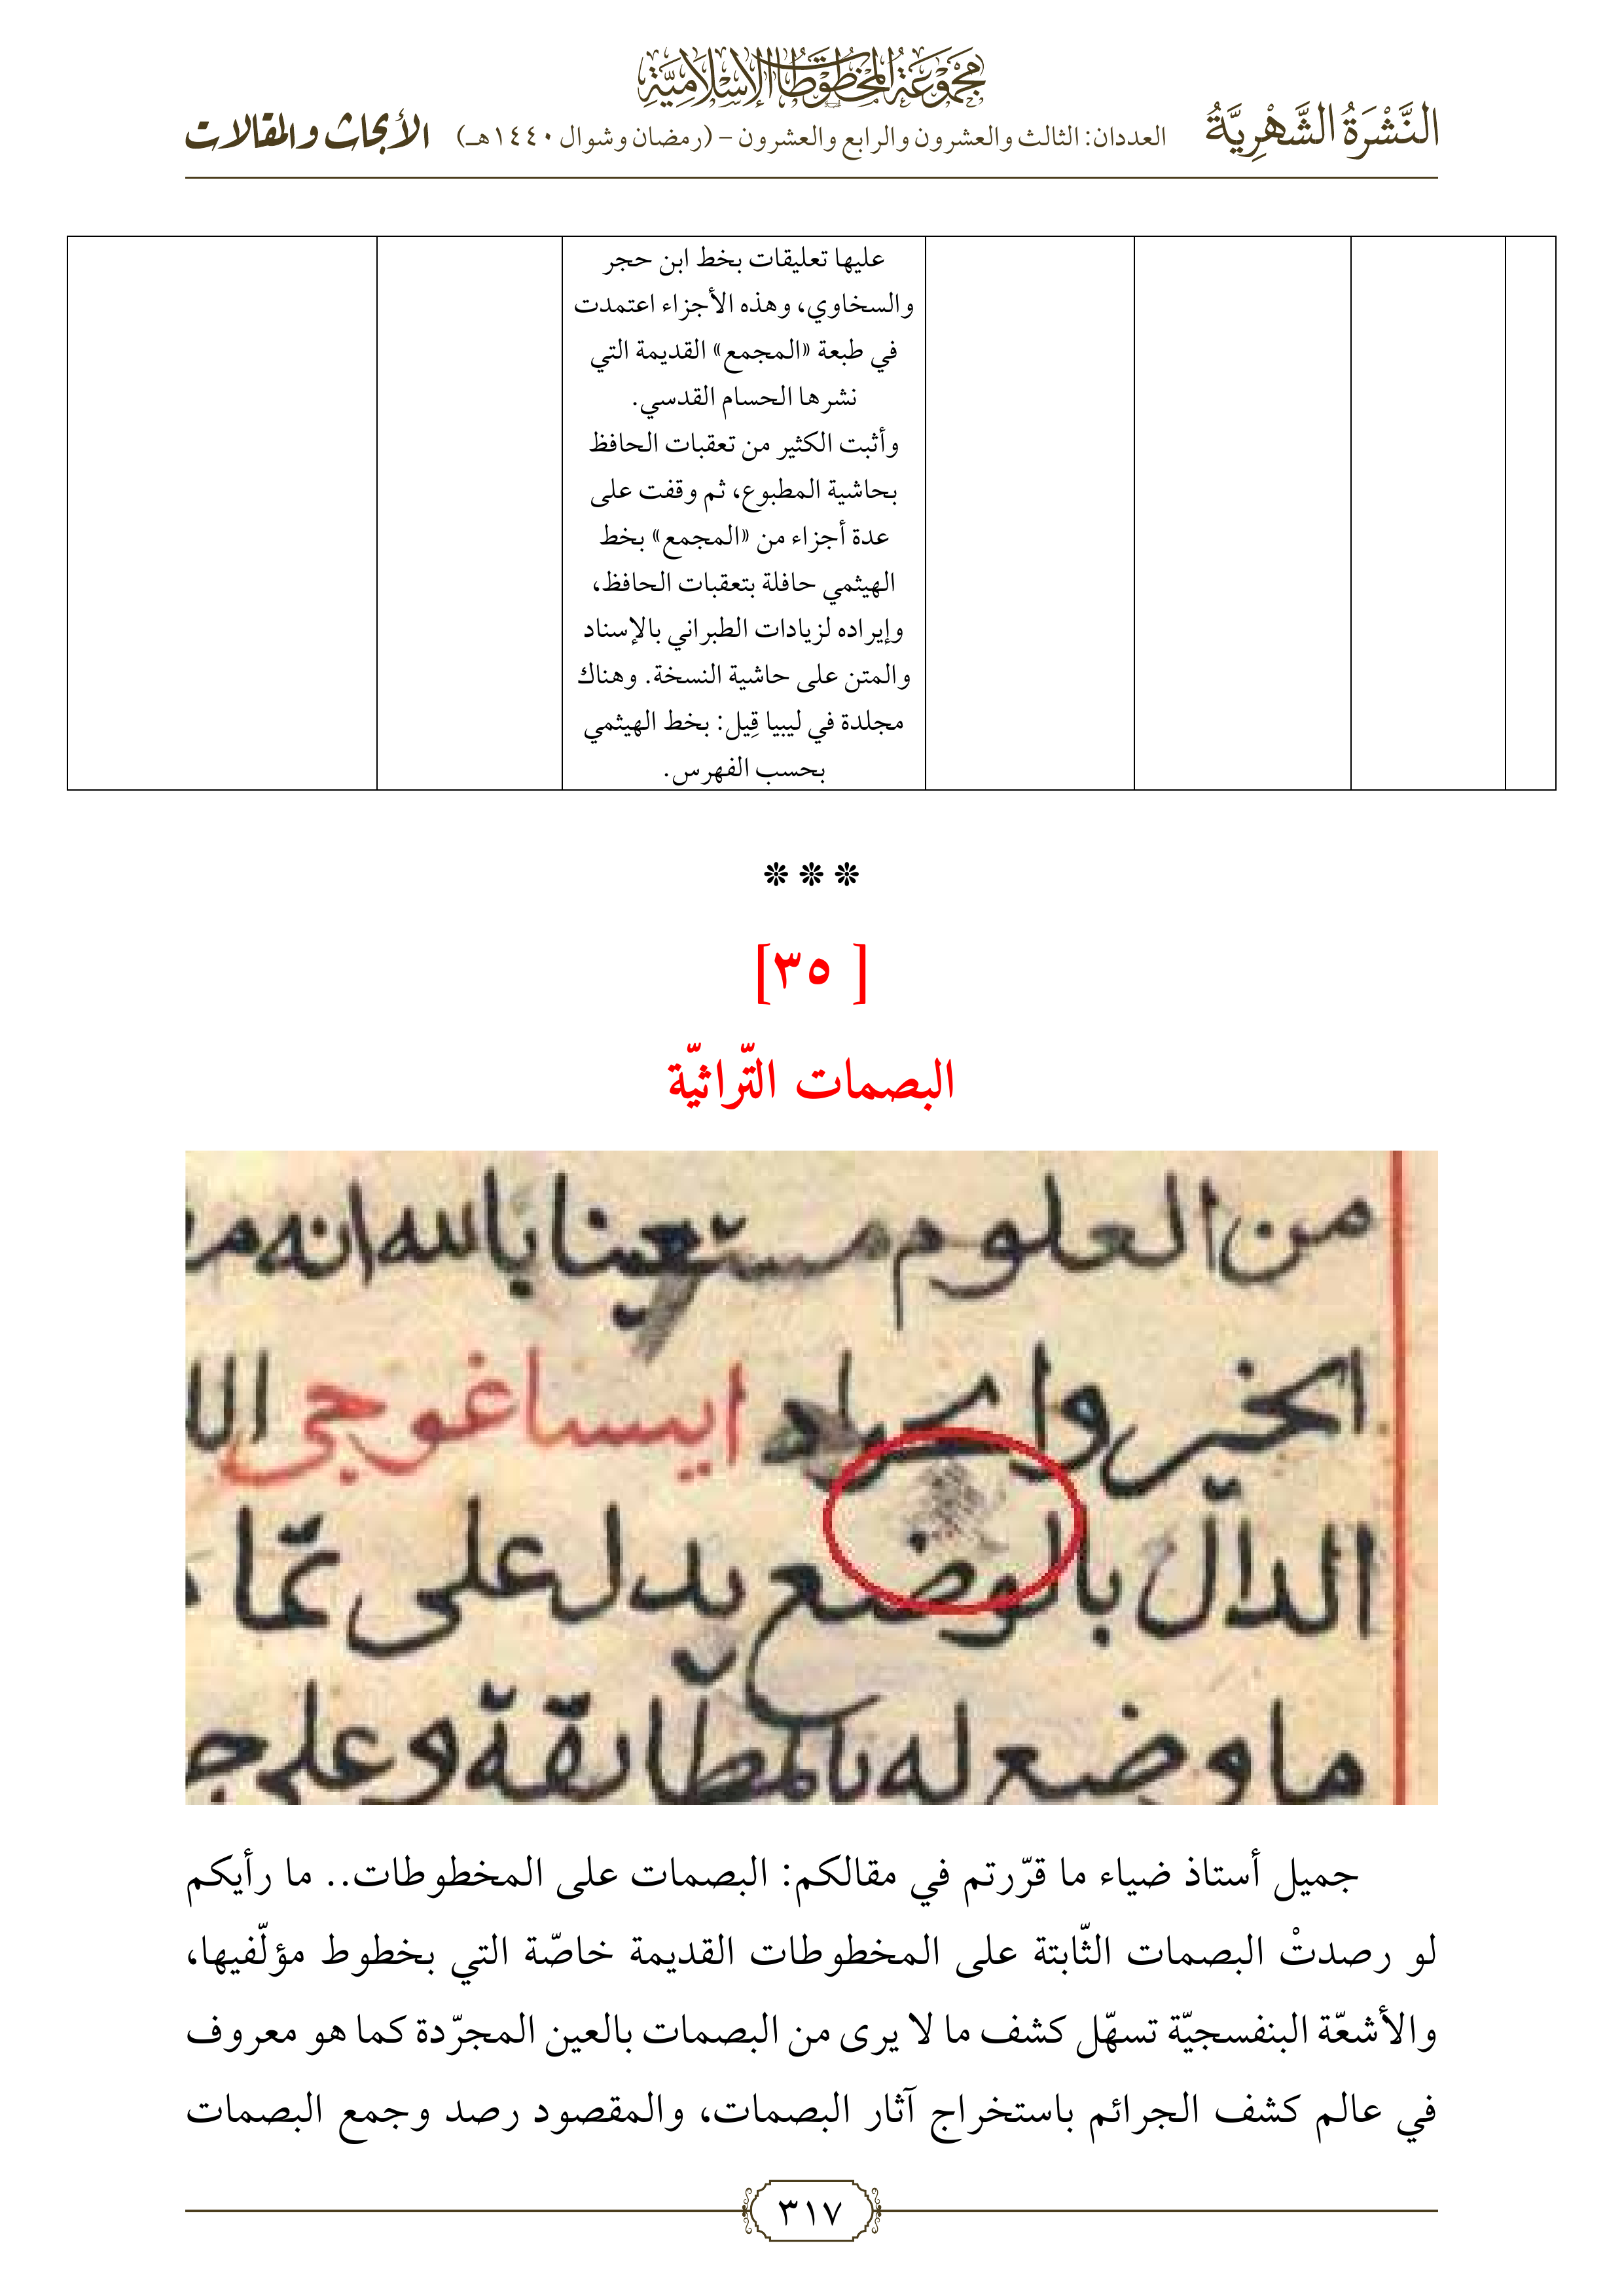 مجموعة المخطوطات الإسلامية
النَّشْرَةُ الشَّهْرِيَّةُ العددان: الثالث والعشرون والرابع والعشرون - (رمضان وشوال ١٤٤٠هـ) الأبحاث والمقالات
عليها تعليقات بخط ابن حجر
والسخاوي، وهذه الأجزاء اعتمدت
في طبعة «المجمع» القديمة التي
نشرها الحسام القدسي.
وأثبت الكثير من تعقبات الحافظ
بحاشية المطبوع، ثم وقفت على
عدة أجزاء من «المجمع» بخط
الهيثمي حافلة بتعقبات الحافظ،
وإيراده لزيادات الطبراني بالإسناد
والمتن على حاشية النسخة. وهناك
مجلدة في ليبيا قِيل: بخط الهيثمي
بحسب الفهرس.
[٣٥]
البصمات التّراثيّة
من العلوم مستعينا بالله انه
الخير وا ايساغوجى
الدالّ بالوضع يدل على تمام
ما وضع له بالمطابقة وعلى
جميل أستاذ ضياء ما قرّرتم في مقالكم: البصمات على المخطوطات.. ما رأيكم
لو رصدتْ البصمات الثّابتة على المخطوطات القديمة خاصّة التي بخطوط مؤلّفيها،
والأشعّة البنفسجيّة تسهّل كشف ما لا يرى من البصمات بالعين المجرّدة كما هو معروف
في عالم كشف الجرائم باستخراج آثار البصمات، والمقصود رصد وجمع البصمات
٣١٧